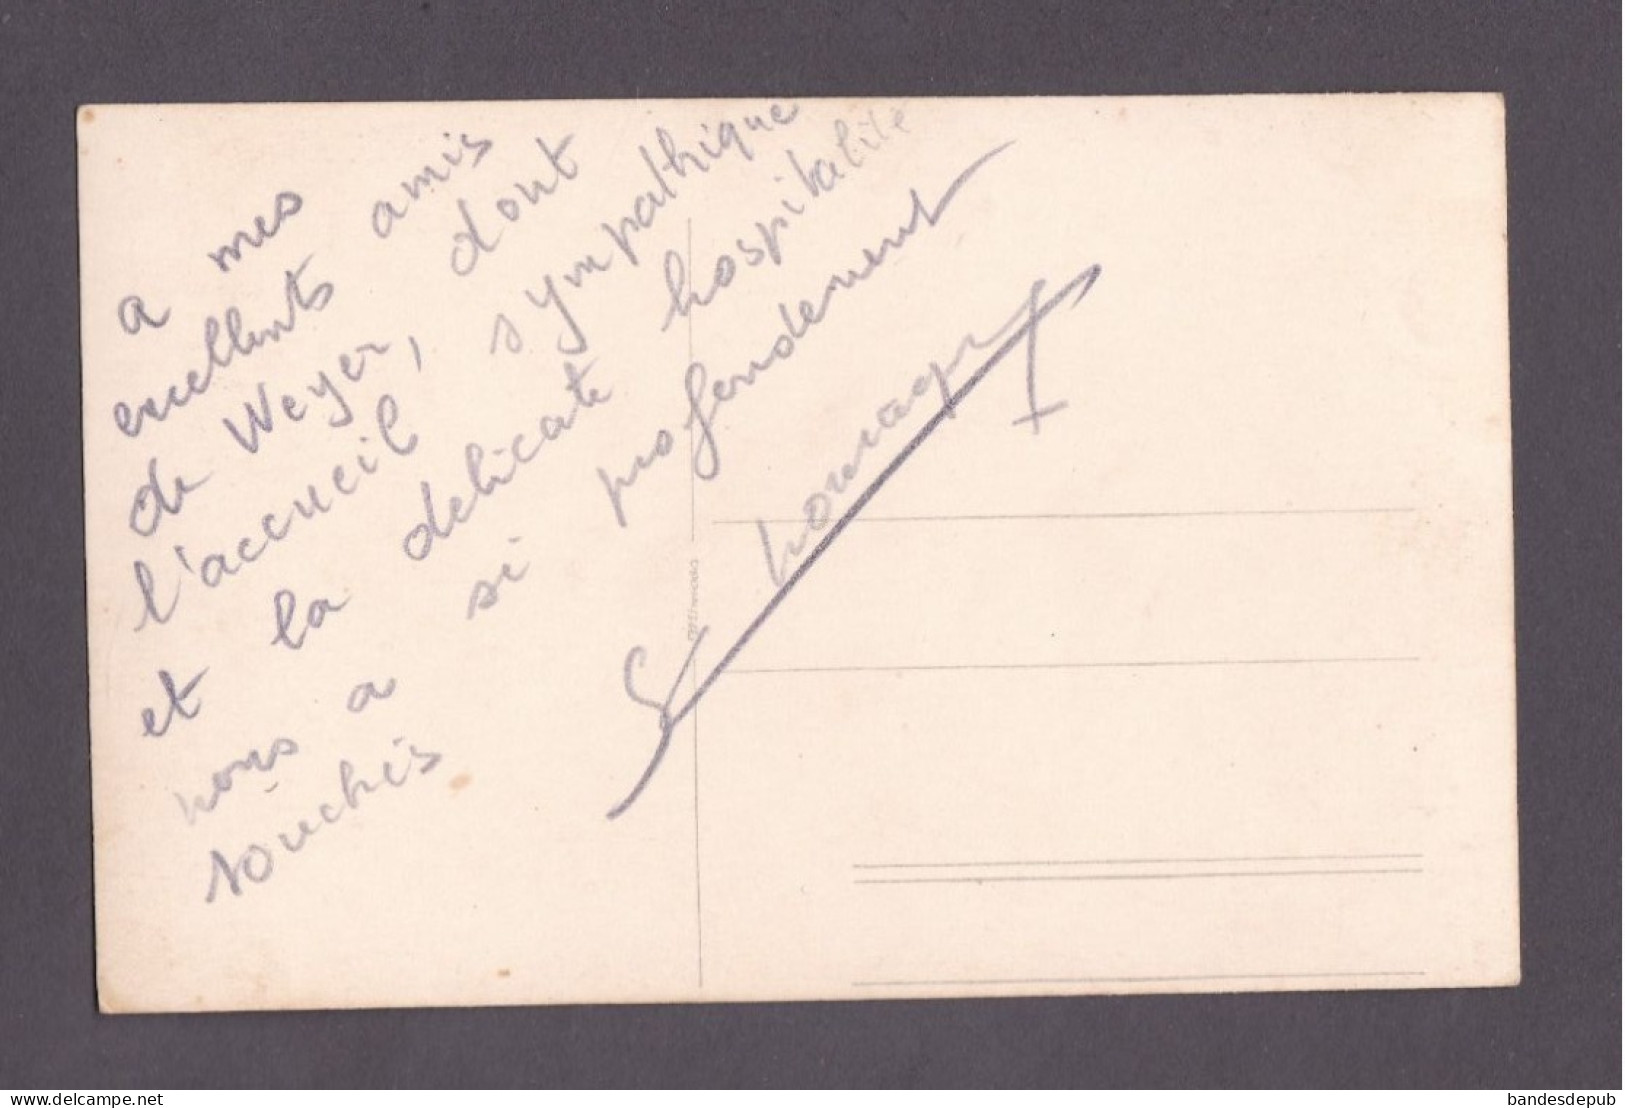 a mes
excellents amis
de Weyer, dont
l'accueil sympathique
et la delicate hospitalité
nous a si profondement
touchés
www.delcampe.net
bandesdepub